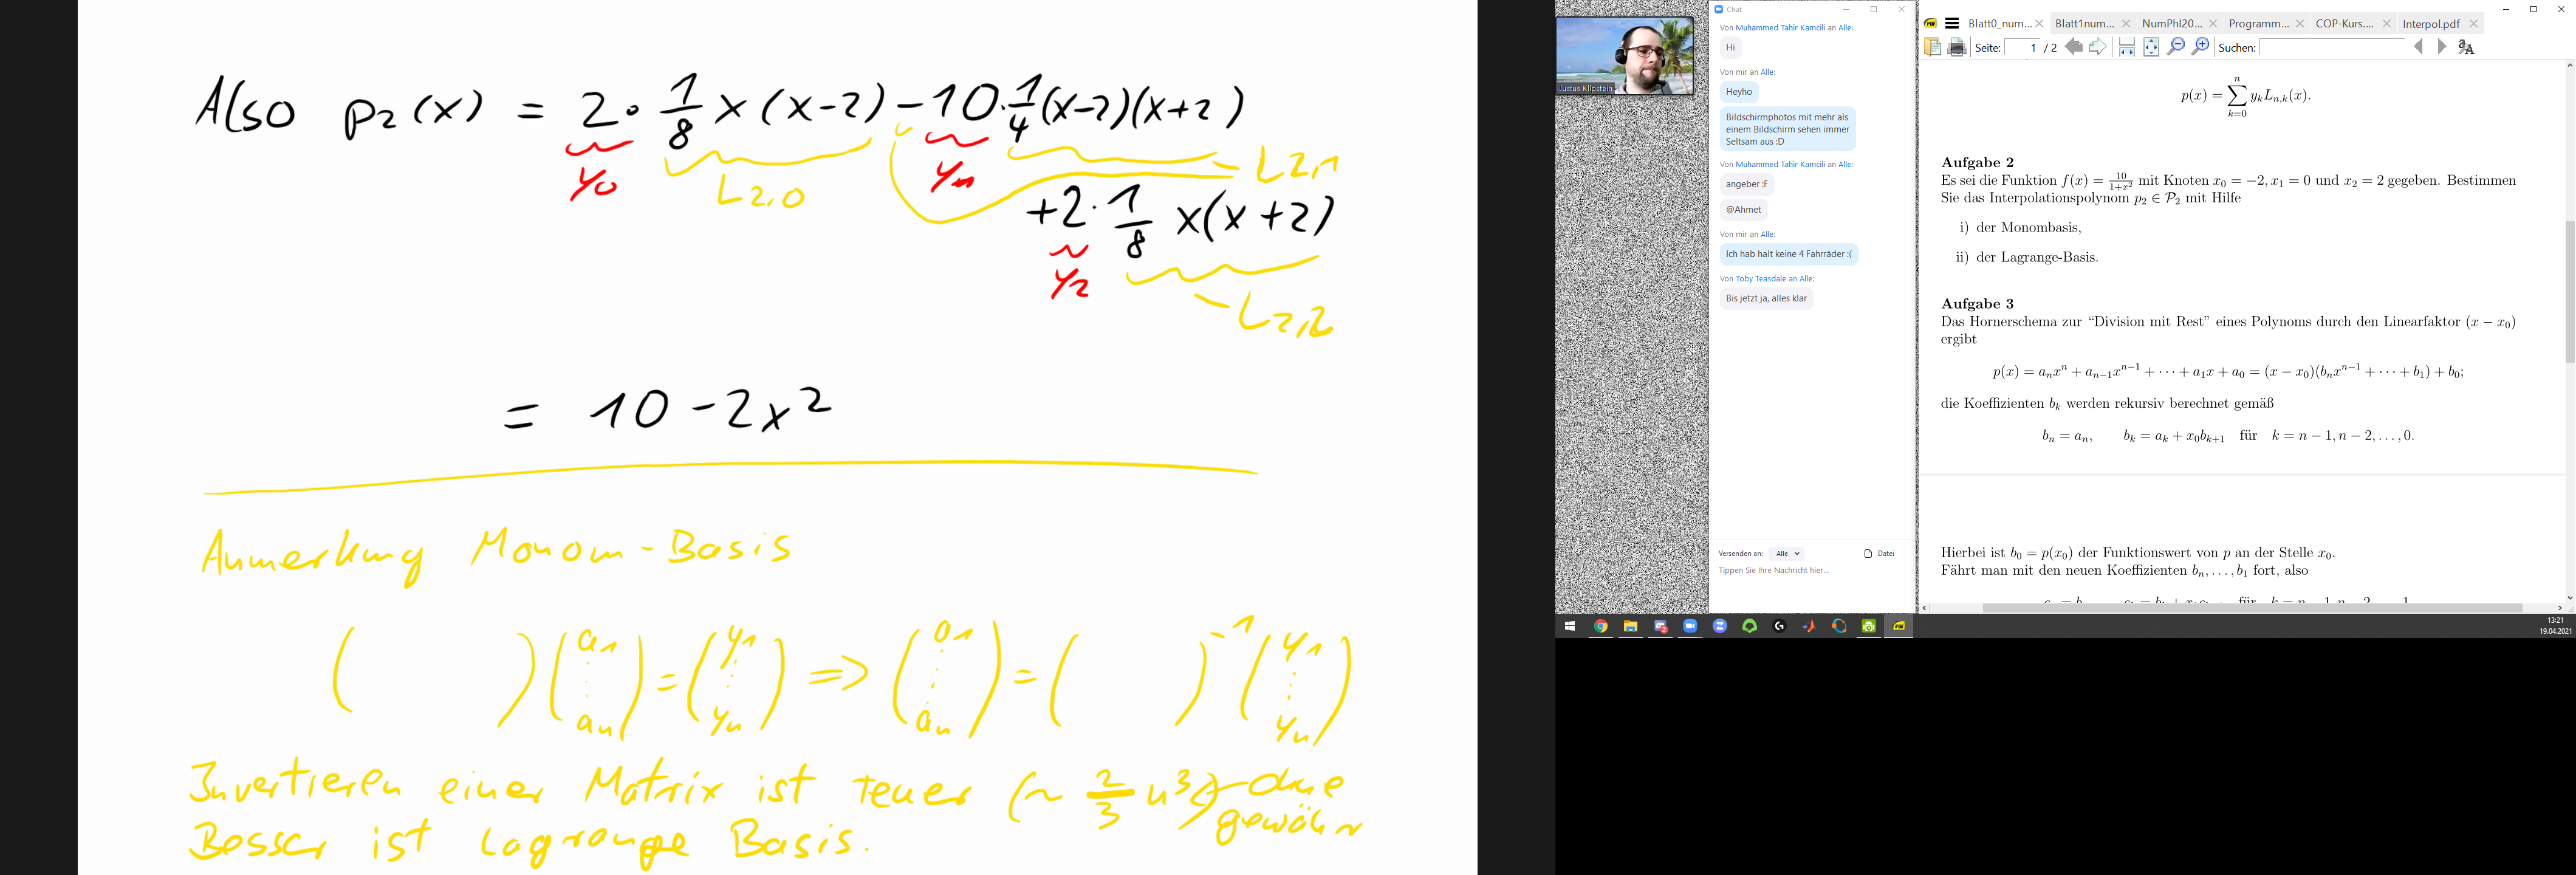 Also p₂(x) = 2 · 1/8 x(x-2) - 10 · 1/4 (x-2)(x+2)
y₀ L₂,₀ y₁ L₂,₁
+2 · 1/8 x(x+2)
y₂ L₂,₂
= 10 - 2x²
Anmerkung Monom-Basis
( ) (a₁ ⋮ aₙ) = (y₁ ⋮ yₙ) ⇒ (a₁ ⋮ aₙ) = ( )⁻¹ (y₁ ⋮ yₙ)
Invertieren einer Matrix ist teuer (~ 2/3 n³) - ohne gewähr
Besser ist Lagrange Basis.
Justus Klipstein
Chat
Von Muhammed Tahir Kamcili an Alle:
Hi
Von mir an Alle:
Heyho
Bildschirmphotos mit mehr als
einem Bildschirm sehen immer
Seltsam aus :D
Von Muhammed Tahir Kamcili an Alle:
angeber :F
@Ahmet
Von mir an Alle:
Ich hab halt keine 4 Fahrräder :(
Von Toby Teasdale an Alle:
Bis jetzt ja, alles klar
Versenden an: Alle Datei
Tippen Sie Ihre Nachricht hier...
Blatt0_num... Blatt1num... NumPhI20... Programm... COP-Kurs.... Interpol.pdf
Seite: 1 / 2 Suchen:
p(x) = ∑ₖ₌₀ⁿ yₖLₙ,ₖ(x).
Aufgabe 2
Es sei die Funktion f(x) = 10/(1+x²) mit Knoten x₀ = −2, x₁ = 0 und x₂ = 2 gegeben. Bestimmen
Sie das Interpolationspolynom p₂ ∈ 𝒫₂ mit Hilfe
i) der Monombasis,
ii) der Lagrange-Basis.
Aufgabe 3
Das Hornerschema zur “Division mit Rest” eines Polynoms durch den Linearfaktor (x − x₀)
ergibt
p(x) = aₙxⁿ + aₙ₋₁xⁿ⁻¹ + · · · + a₁x + a₀ = (x − x₀)(bₙxⁿ⁻¹ + · · · + b₁) + b₀;
die Koeffizienten bₖ werden rekursiv berechnet gemäß
bₙ = aₙ, bₖ = aₖ + x₀bₖ₊₁ für k = n − 1, n − 2, . . . , 0.
Hierbei ist b₀ = p(x₀) der Funktionswert von p an der Stelle x₀.
Fährt man mit den neuen Koeffizienten bₙ, . . . , b₁ fort, also
13:21
19.04.2021